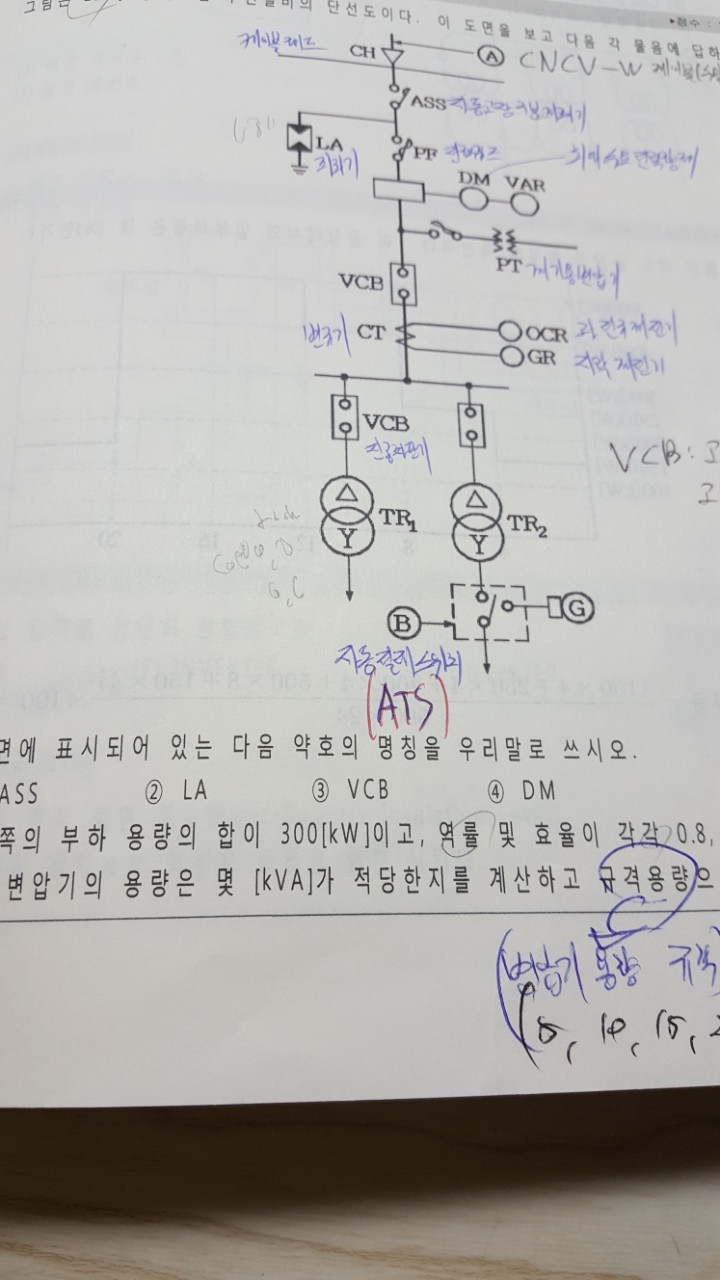 단선도이다. 이 도면을 보고 다음 각 물음에 답하
케이블헤드 CH A CNCV-W 케이블
ASS 자동고장구분개폐기
LA PF
피뢰기 DM VAR 최대수요전력량계
PT 계기용변압기
VCB
변류기 CT OCR 과전류계전기
GR 지락계전기
VCB
진공차단기
VCB:
Δ Y TR₁ Δ Y TR₂
B G
자동절체스위치
(ATS)
면에 표시되어 있는 다음 약호의 명칭을 우리말로 쓰시오.
ASS ② LA ③ VCB ④ DM
쪽의 부하 용량의 합이 300[kW]이고, 역률 및 효율이 각각 0.8,
변압기의 용량은 몇 [kVA]가 적당한지를 계산하고 규격용량으
(변압기 용량 규격)
(5, 10, 15,